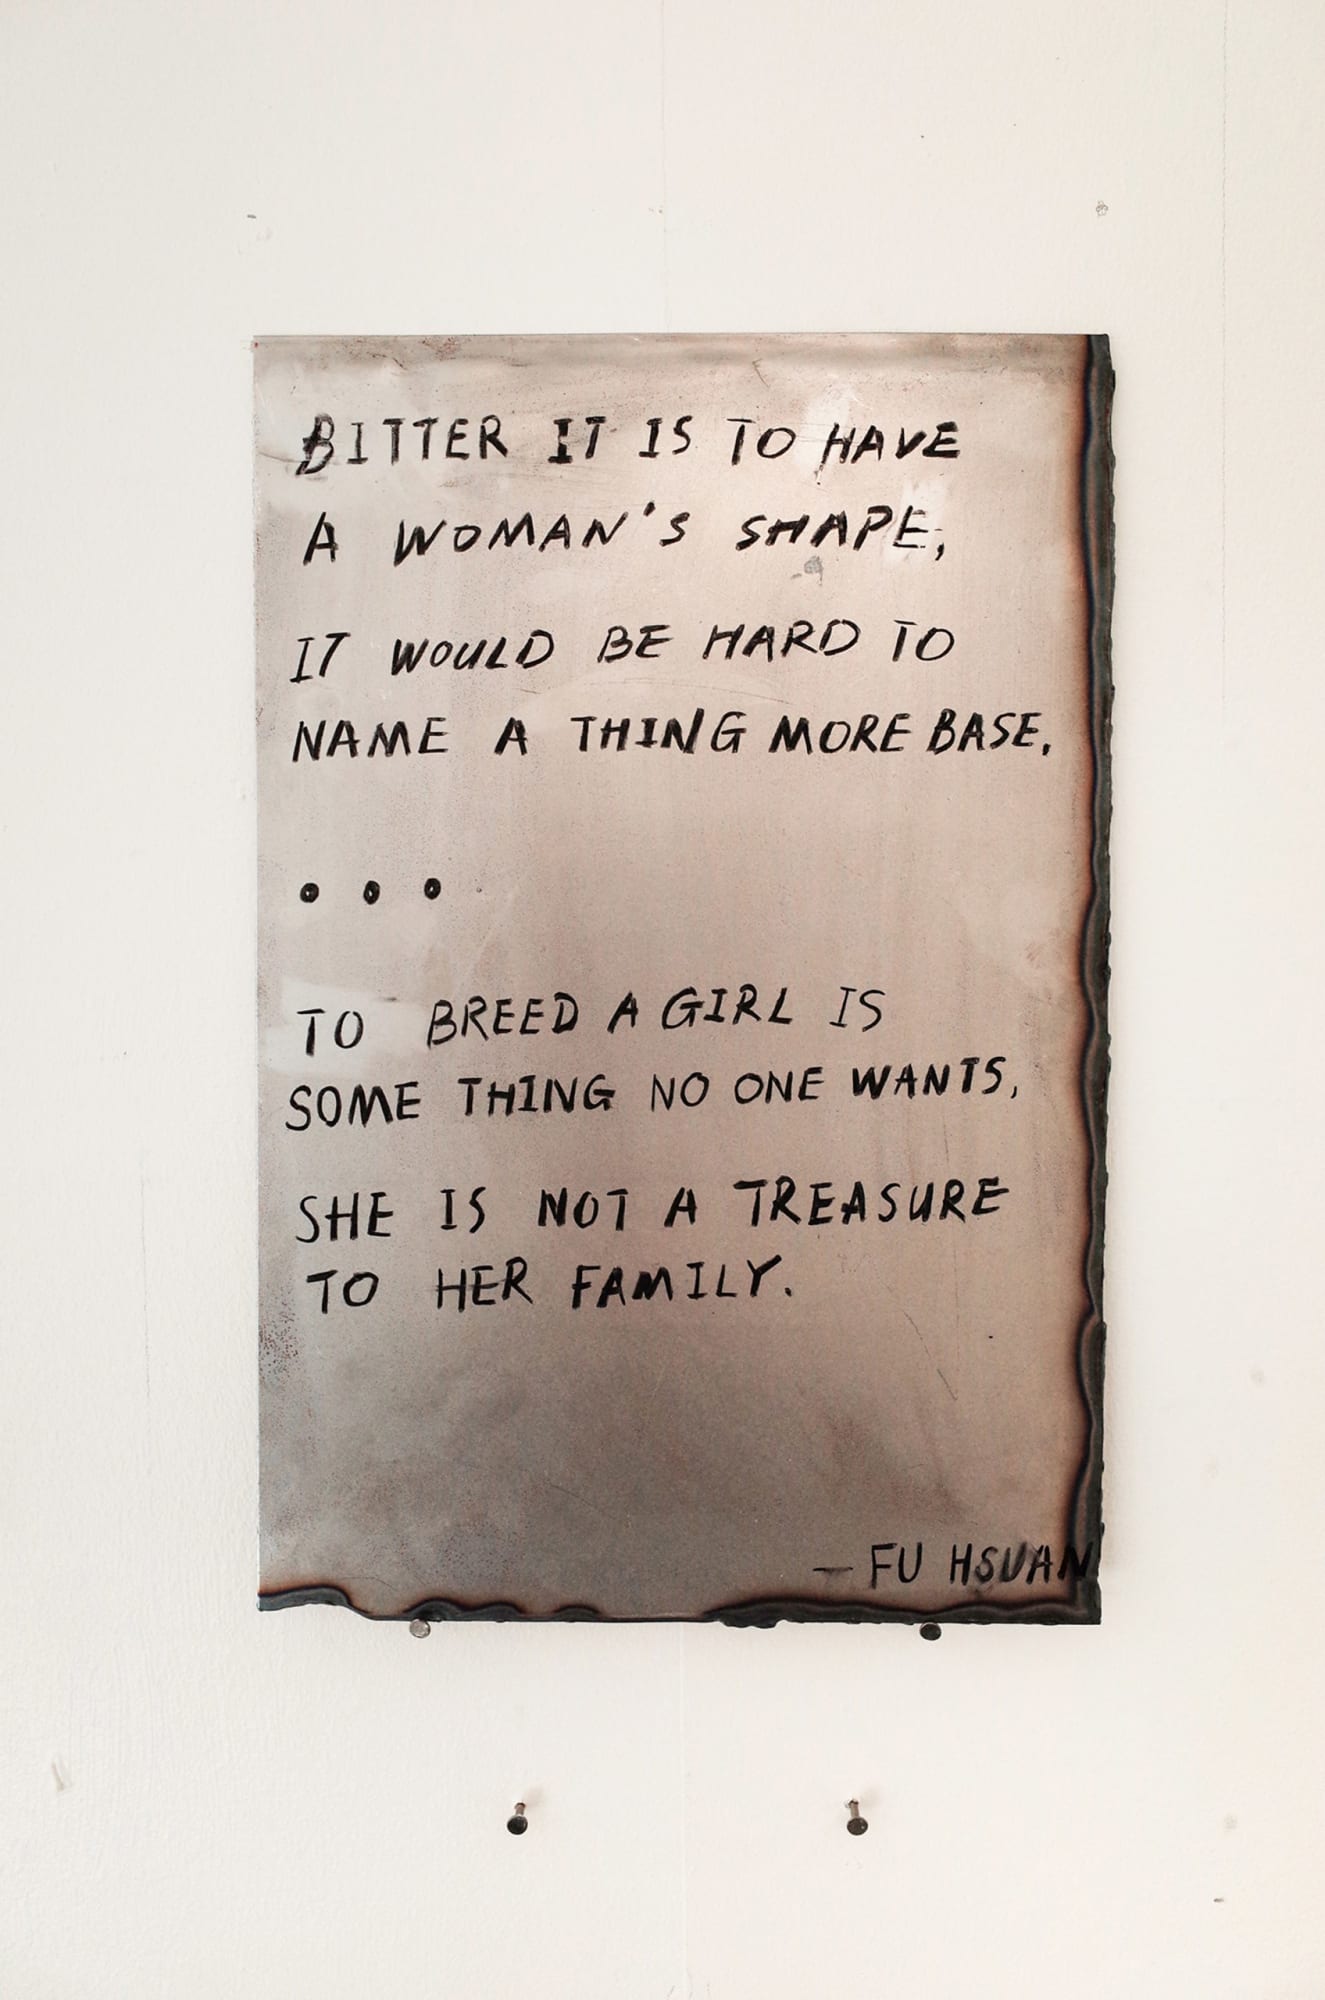 BITTER IT IS TO HAVE
A WOMAN'S SHAPE,
IT WOULD BE HARD TO
NAME A THING MORE BASE,
• • •
TO BREED A GIRL IS
SOME THING NO ONE WANTS,
SHE IS NOT A TREASURE
TO HER FAMILY.
— FU HSUAN